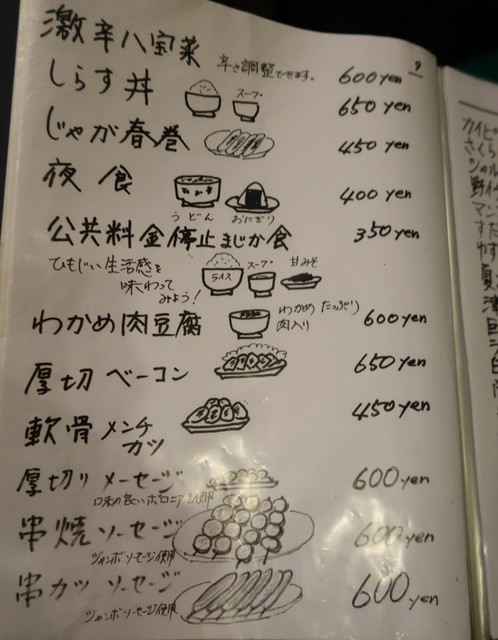 9
激辛八宝菜 辛さ調整できます。 600yen
しらす丼 スープ 650yen
じゃが春巻 450yen
夜食 400yen
うどん おにぎり
公共料金停止まじか食 350yen
ひもじい生活感を
味わって
みよう!
ライス スープ 甘みそ
わかめ肉豆腐 わかめたっぷり
肉入り 600yen
厚切ベーコン 650yen
軟骨メンチ
カツ 450yen
厚切りメーセージ 600yen
口味の良いボロニアを使用
串焼ソーセージ 600yen
ジャンボソーセージ使用
串カツソーセージ 600yen
ジャンボソーセージ使用
カイピ
さくら
野イ
マン
すだ
ゆず
夏